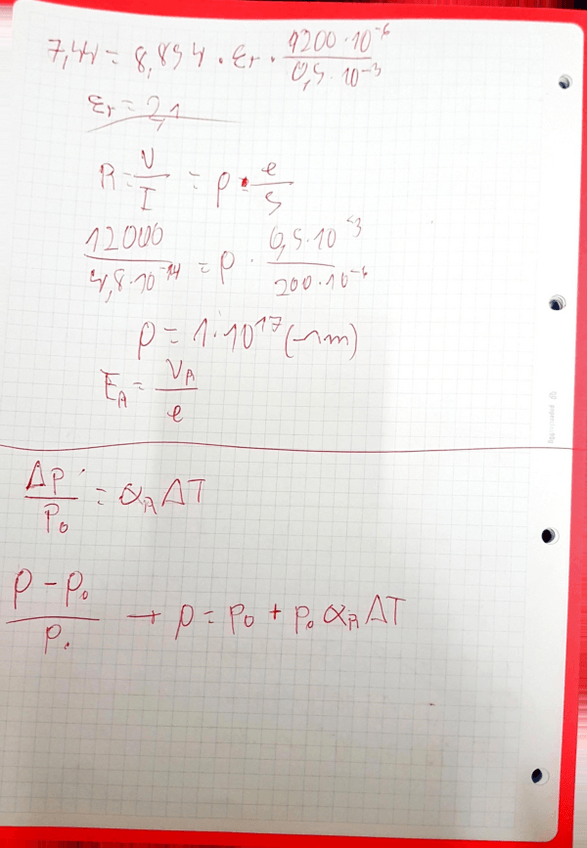 7,44 = 8,854 · εr · 1200·10⁻⁶ / 0,5·10⁻³
εr = 2,1
R = V/I = ρ · e/S
12000 / 4,8·10⁻¹⁴ = ρ · 0,5·10⁻³ / 200·10⁻⁶
ρ = 1·10¹⁷ (Ωm)
E_A = V_A / e
Δρ / ρ₀ = α_R ΔT
ρ - ρ₀ / ρ₀ → ρ = ρ₀ + ρ₀ α_R ΔT